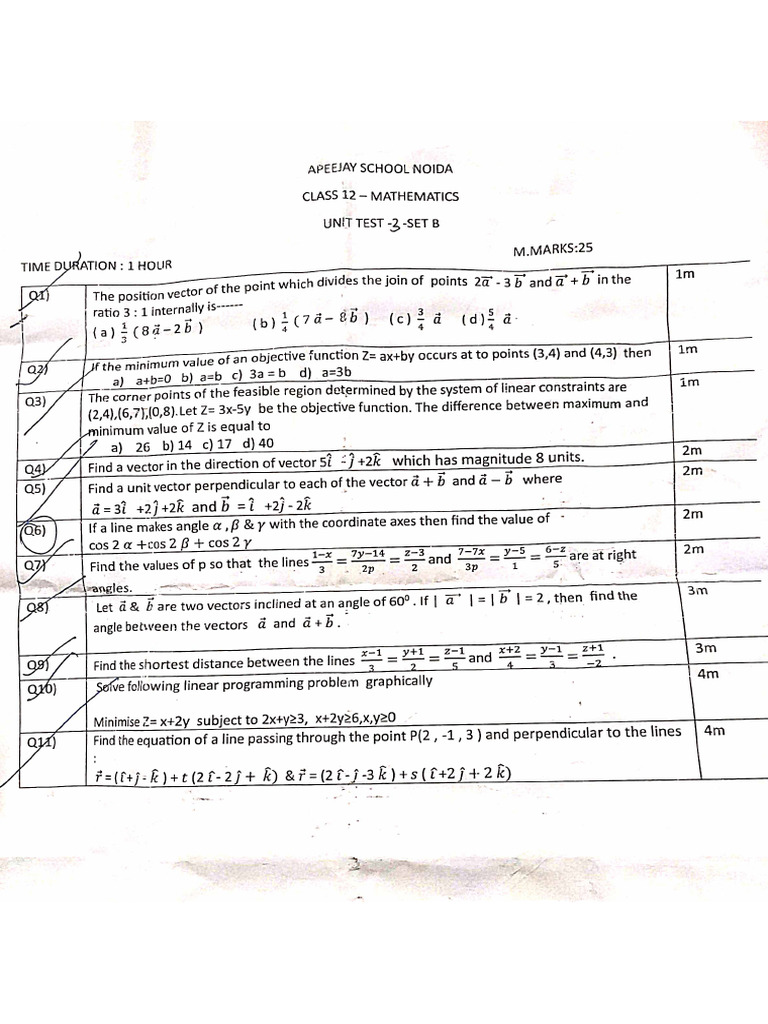 APEEJAY SCHOOL NOIDA
CLASS 12 – MATHEMATICS
UNIT TEST -3 -SET B
M.MARKS:25
TIME DURATION : 1 HOUR
Q1) The position vector of the point which divides the join of points 2a⃗ - 3b⃗ and a⃗ + b⃗ in the 1m
ratio 3 : 1 internally is------
(a) 1/3 (8a⃗ – 2b⃗ ) (b) 1/4 (7a⃗ – 8b⃗ ) (c) 3/4 a⃗ (d) 5/4 a⃗
Q2) If the minimum value of an objective function Z= ax+by occurs at to points (3,4) and (4,3) then 1m
a) a+b=0 b) a=b c) 3a = b d) a=3b
Q3) The corner points of the feasible region determined by the system of linear constraints are 1m
(2,4),(6,7),(0,8).Let Z= 3x-5y be the objective function. The difference between maximum and
minimum value of Z is equal to
a) 26 b) 14 c) 17 d) 40
Q4) Find a vector in the direction of vector 5î - ĵ +2k̂ which has magnitude 8 units. 2m
Q5) Find a unit vector perpendicular to each of the vector a⃗ + b⃗ and a⃗ – b⃗ where 2m
a⃗ = 3î +2ĵ +2k̂ and b⃗ = î +2ĵ - 2k̂
Q6) If a line makes angle α , β & γ with the coordinate axes then find the value of 2m
cos 2 α +cos 2 β + cos 2 γ
Q7) Find the values of p so that the lines (1−x)/3 = (7y−14)/2p = (z−3)/2 and (7−7x)/3p = (y−5)/1 = (6−z)/5 are at right 2m
angles.
Q8) Let a⃗ & b⃗ are two vectors inclined at an angle of 60⁰ . If | a⃗ | = | b⃗ | = 2 , then find the 3m
angle between the vectors a⃗ and a⃗ + b⃗ .
Q9) Find the shortest distance between the lines (x−1)/3 = (y+1)/2 = (z−1)/5 and (x+2)/4 = (y−1)/3 = (z+1)/−2 . 3m
Q10) Solve following linear programming problem graphically 4m
Minimise Z= x+2y subject to 2x+y≥3, x+2y≥6,x,y≥0
Q11) Find the equation of a line passing through the point P(2 , -1 , 3 ) and perpendicular to the lines 4m
:
r⃗ = (î+ĵ - k̂ ) + t (2 î - 2 ĵ + k̂) & r⃗ = (2 î - ĵ -3 k̂ ) + s ( î +2 ĵ + 2 k̂)